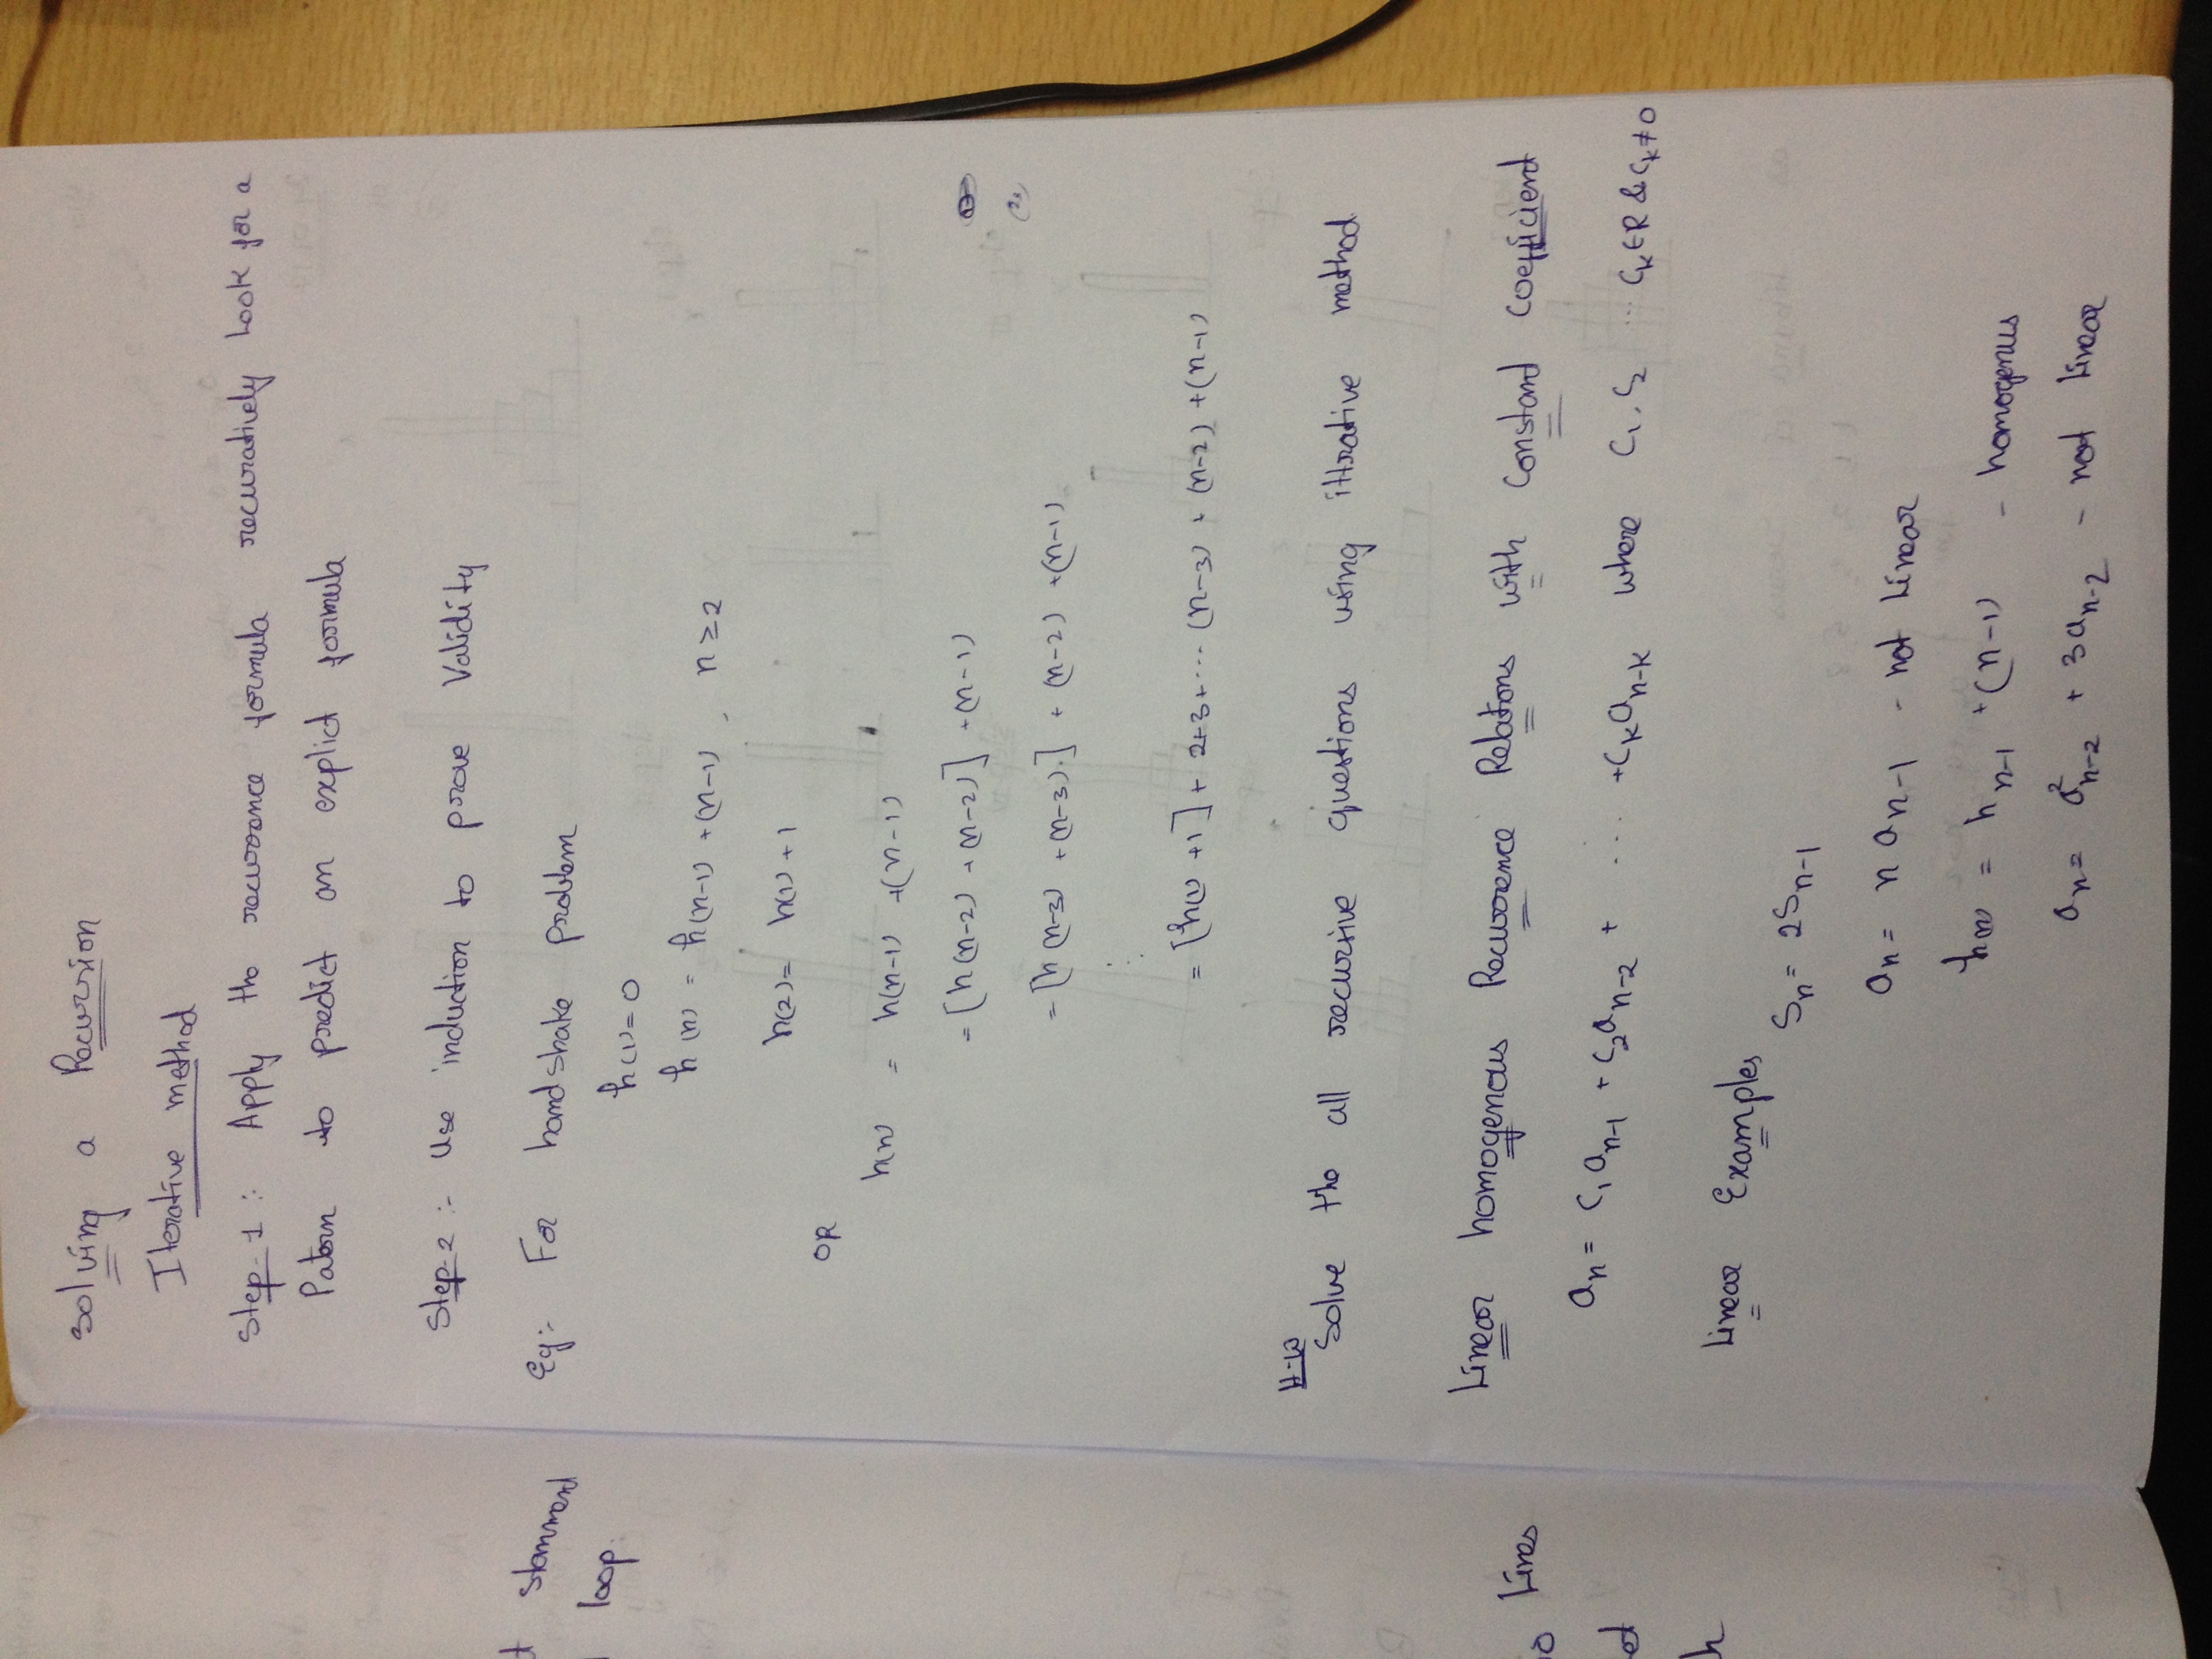 t stammend
loop.
Lines
Solving a Recursion
Iterative method
Step-1 : Apply the recurrance formula recurratively Look for a
Patorn to predict an explict formula
Step-2 :- use induction to prove Validity
Eg:- For handshake problem
h(1) = 0
h(n) = h(n-1) + (n-1), n ≥ 2
h(2) = h(1) + 1
OR
h(n) = h(n-1) + (n-1)
= [h(n-2) + (n-2)] + (n-1)
= [h(n-3) + (n-3).] + (n-2) + (n-1)
⋮
= [h(1) + 1] + 2+3+... (n-3) + (n-2) + (n-1)
H-W
Solve the all recursive questions using ittrative method
Linear homogenous Recurrence Relations with Constand Coefficiend
aₙ = C₁aₙ₋₁ + C₂aₙ₋₂ + ... + Cₖaₙ₋ₖ where C₁, C₂ ... Cₖ ∈ R & Cₖ ≠ 0
Linear Examples
Sₙ = 2Sₙ₋₁
aₙ = n aₙ₋₁ - not Linear
h(n) = hₙ₋₁ + (n-1) - homogenus
aₙ = a²ₙ₋₂ + 3aₙ₋₂ - not Linear